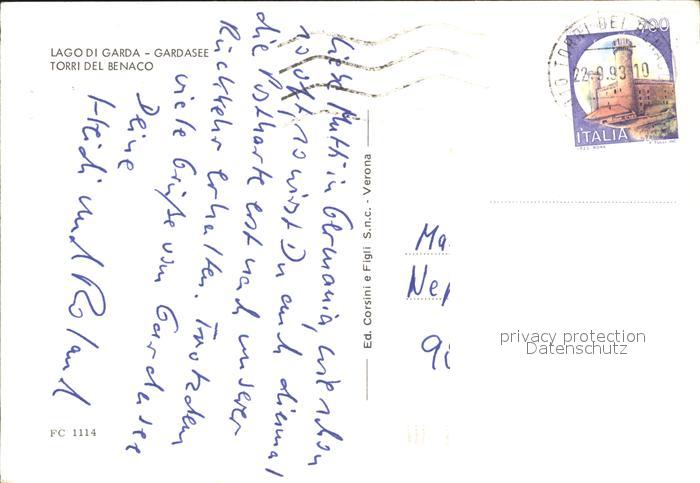 LAGO DI GARDA – GARDASEE
TORRI DEL BENACO
Liebe Mutti in Germania, wie schon
so oft, so wirst Du auch diesmal
die Postkarte erst nach unserer
Rückkehr erhalten. Trotzdem
viele Grüße vom Gardasee
Deine
Heidi und Roland
FC 1114
Ed. Corsini e Figli S.n.c. - Verona
TORRI DEL
22-9.93 10
700
ITALIA
Ma
Nep
90
privacy protection
Datenschutz